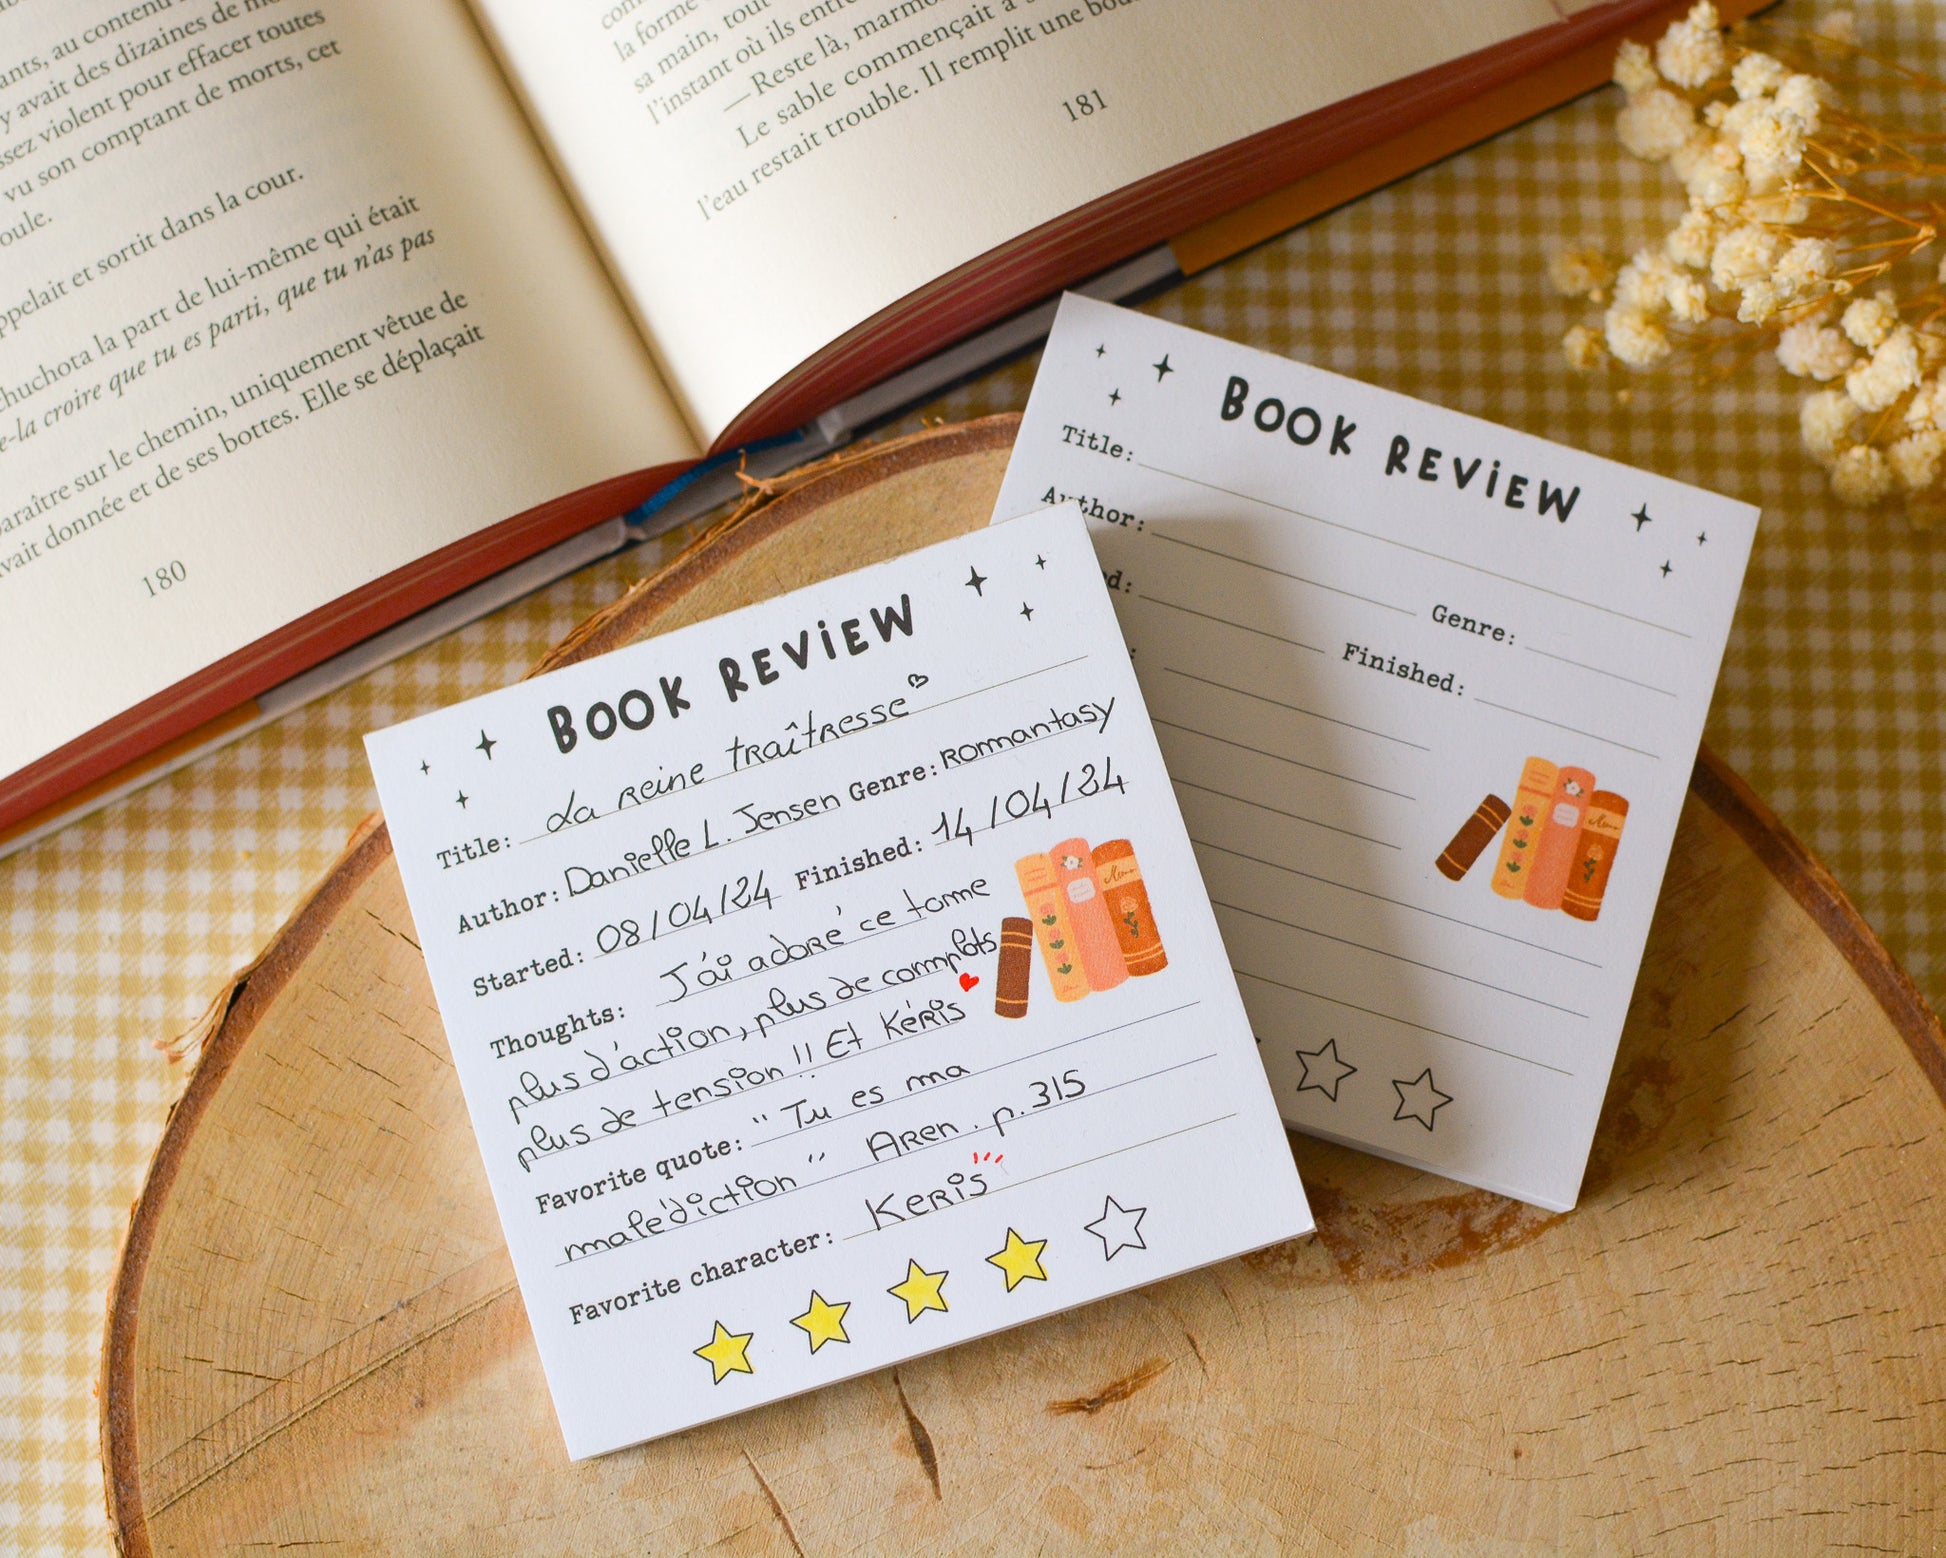 ants, au contenu
y avait des dizaines de
ssez violent pour effacer toutes
vu son comptant de morts, cet
oule.
ppelait et sortit dans la cour.
chuchota la part de lui-même qui était
e-la croire que tu es parti, que tu n'as pas
paraître sur le chemin, uniquement vêtue de
avait donnée et de ses bottes. Elle se déplaçait
180
la forme
sa main, tout
l'instant où ils entre
—Reste là, marmo
Le sable commençait à
l'eau restait trouble. Il remplit une bou
181
BOOK REViEW
Title: La reine traîtresse
Author: Danielle L. Jensen Genre: Romantasy
Started: 08/04/24 Finished: 14/04/24
Thoughts: J'ai adoré ce tome
plus d'action, plus de complots
plus de tension !! Et Kéris
Favorite quote: "Tu es ma
malédiction" Aren. p.315
Favorite character: Keris
BOOK REViEW
Title:
Author: Genre:
d: Finished:
: